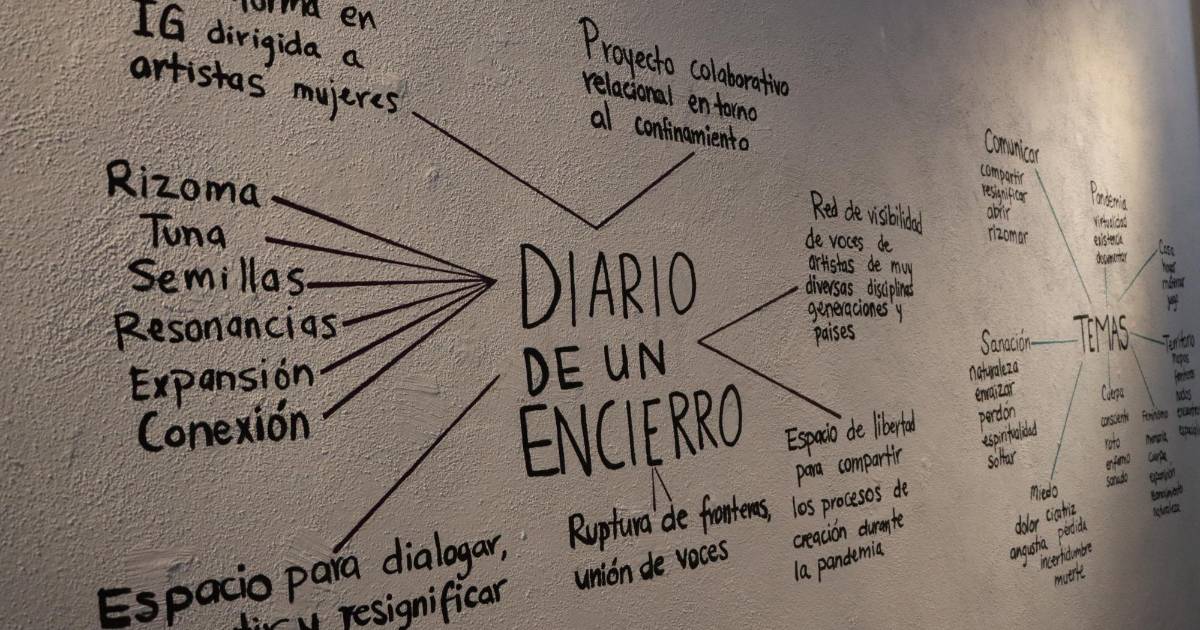 en
IG dirigida a
artistas mujeres
Proyecto colaborativo
relacional en torno
al confinamiento
Rizoma
Tuna
Semillas
Resonancias
Expansión
Conexión
DIARIO
DE UN
ENCIERRO
Red de visibilidad
de voces de
artistas de muy
diversas disciplinas
generaciones y
paises
Espacio de libertad
para compartir
los procesos de
creación durante
la pandemia
Ruptura de fronteras,
unión de voces
Espacio para dialogar,
y resignificar
TEMAS
Comunicar
compartir
resignificar
abrir
rizomar
Pandemia
virtualidad
existencia
documentar
Casa
hogar
maternar
Sanación
naturaleza
enraizar
perdón
espiritualidad
soltar
Miedo
dolor cicatriz
angustia pérdida
incertidumbre
muerte
Cuerpo
consciente
roto
enfermo
sanado
Feminismo
memoria
cuerpo
expansión
Territorio
mapas